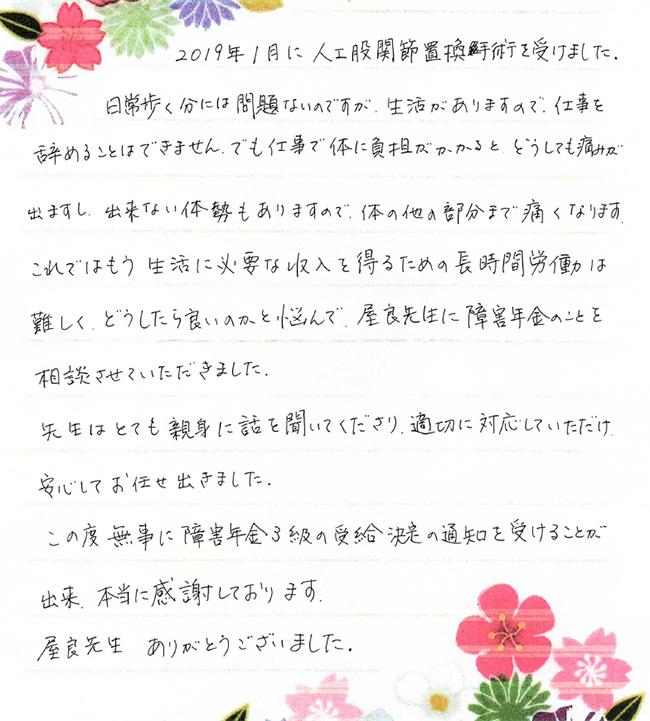 2019年1月に人工股関節置換手術を受けました.
日常歩く分には問題ないのですが、生活がありますので、仕事を
辞めることはできません、でも仕事で体に負担がかかると、どうしても痛みが
出ますし、出来ない体勢もありますので、体の他の部分まで痛くなります.
これではもう生活に必要な収入を得るための長時間労働は
難しく、どうしたら良いのかと悩んで、屋良先生に障害年金のことを
相談させていただきました.
先生はとても親身に話を聞いてくださり、適切に対応していただけ、
安心してお任せ出きました.
この度無事に障害年金3級の受給決定の通知を受けることが
出来、本当に感謝しております.
屋良先生 ありがとうございました.